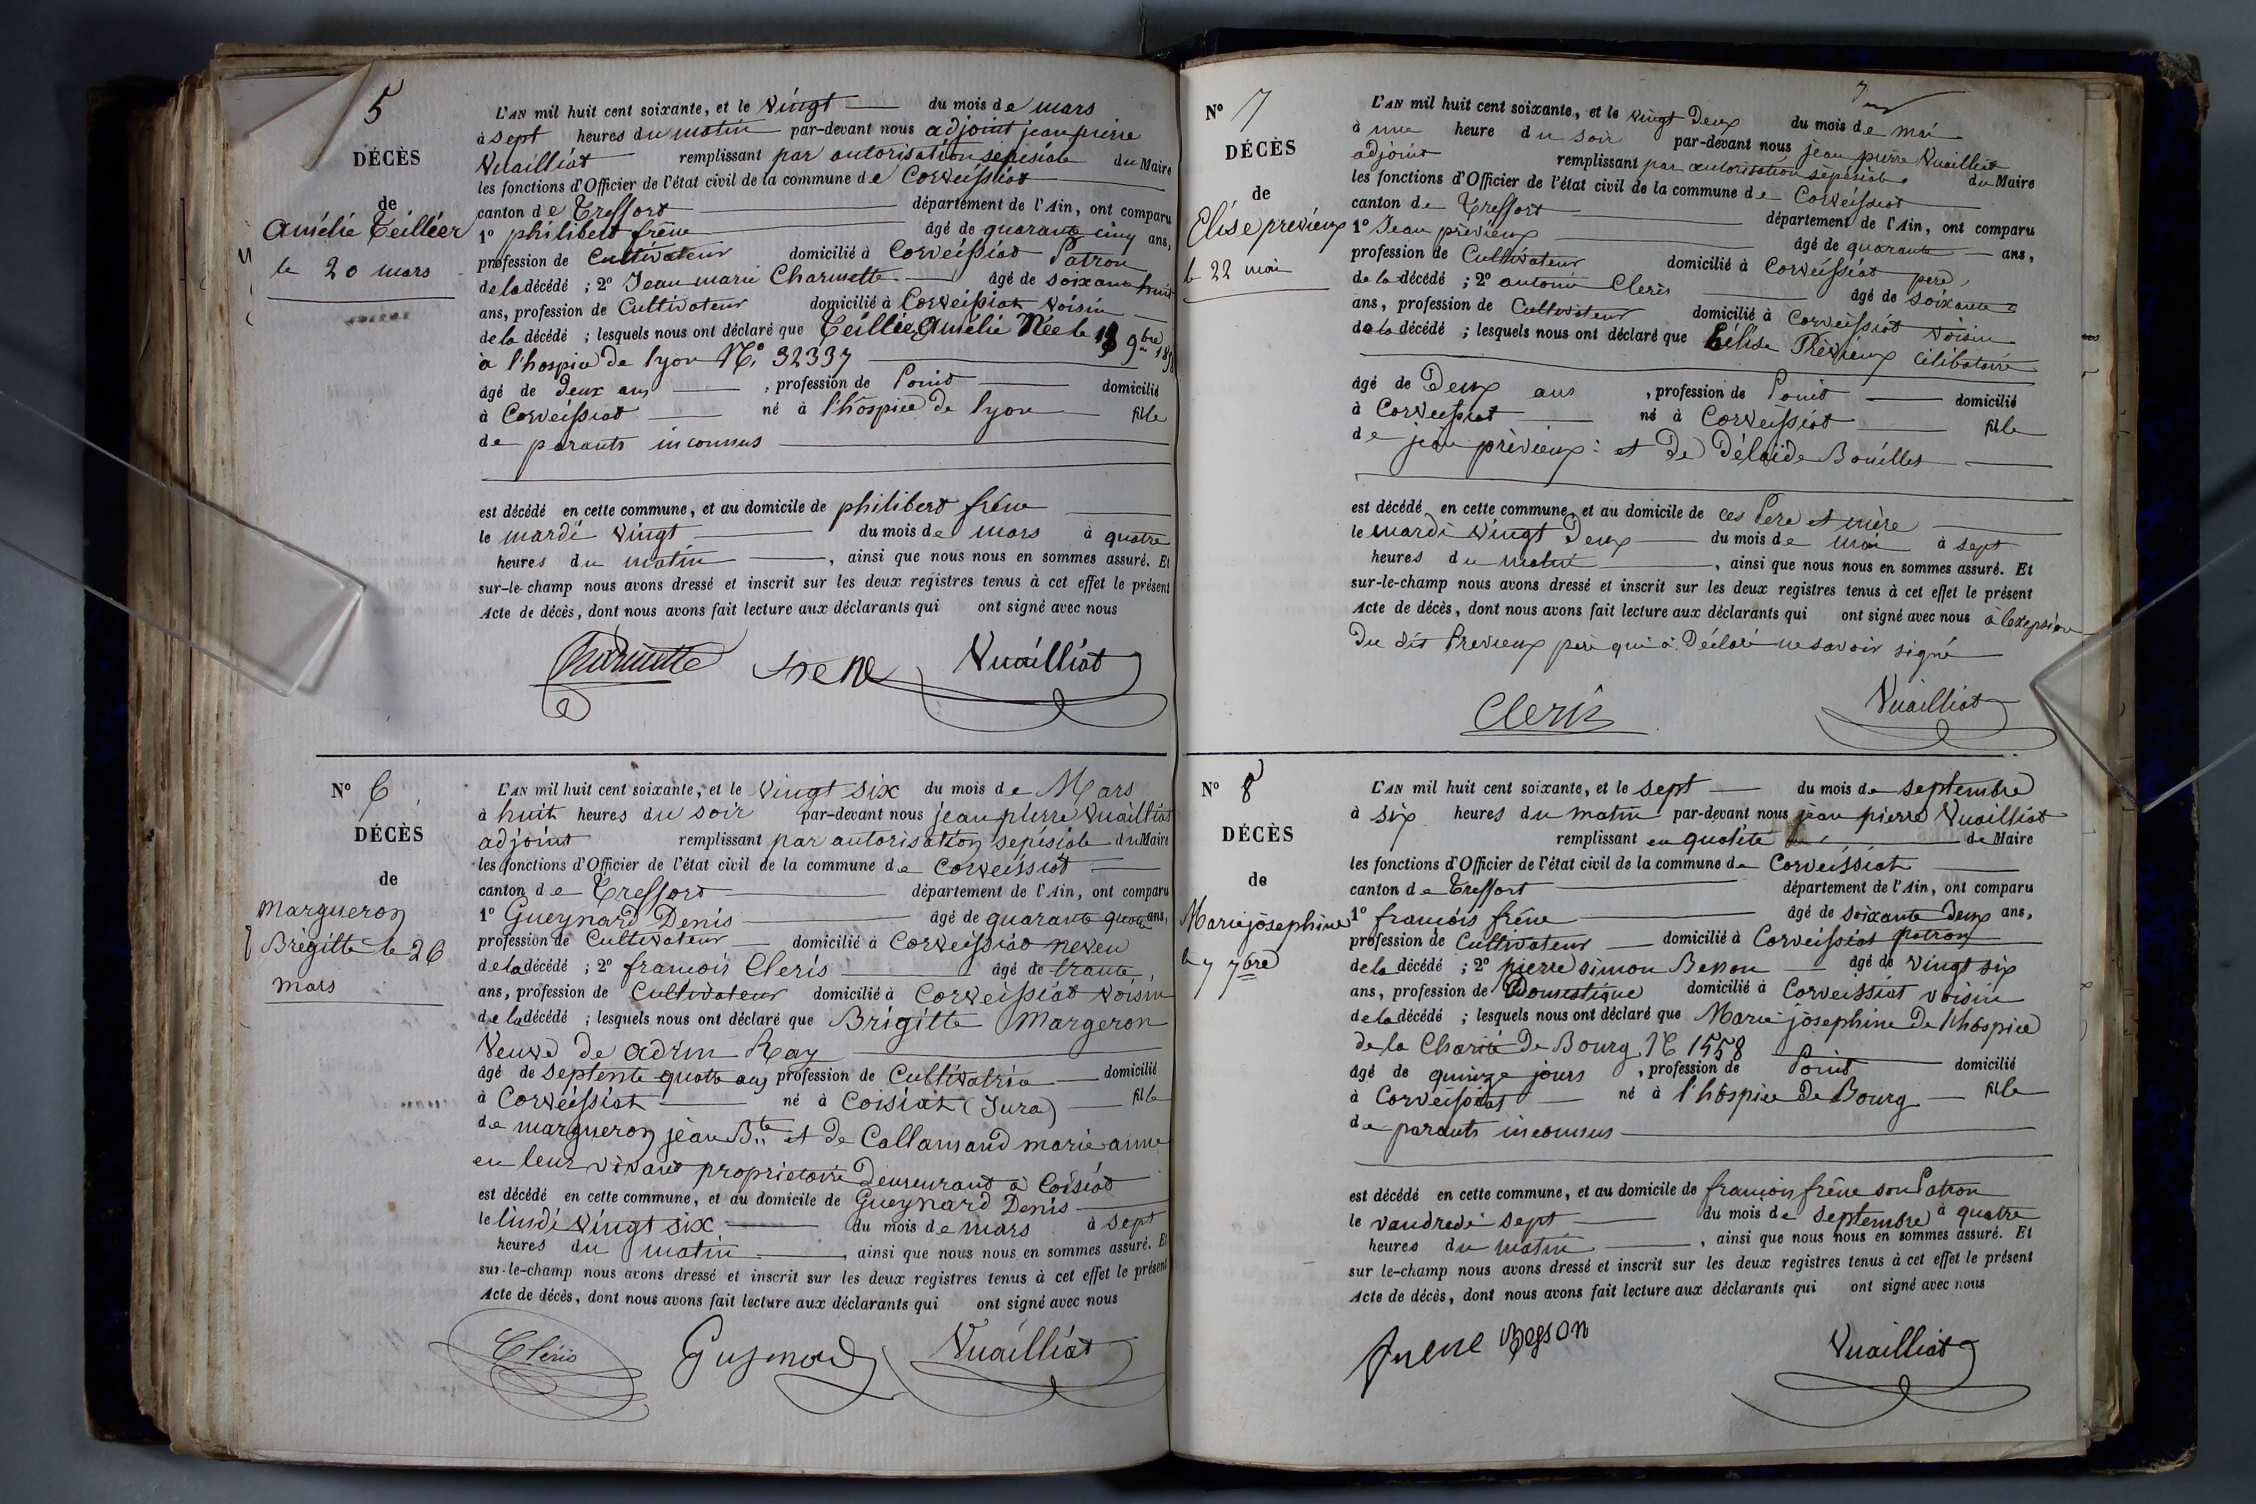 5
DÉCÈS
de
Amélie Teillier
le 20 mars
L'AN mil huit cent soixante, et le vingt du mois de mars
à sept heures du matin par-devant nous adjoint jean pierre
Vuailliat remplissant par autorisation sepésiale du Maire
les fonctions d'Officier de l'état civil de la commune de Corveissiat
canton de Treffort département de l'Ain, ont comparu
1° philibert frêne âgé de quarante cinq ans,
profession de Cultivateur domicilié à Corveissiat Patron
de la décédé ; 2° Jean marie Charnette âgé de soixante huit
ans, profession de Cultivateur domicilié à Corveissiat voisin
de la décédé ; lesquels nous ont déclaré que Teillier Amélie Née le 9bre
à l'hospice de lyon N° 32337
âgé de deux ans , profession de Point domicilié
à Corveissiat né à l'hospice de lyon fille
de parants inconnus
est décédé en cette commune, et au domicile de philibert frêne
le mardi vingt du mois de mars à quatre
heures du matin , ainsi que nous nous en sommes assuré. Et
sur-le-champ nous avons dressé et inscrit sur les deux registres tenus à cet effet le présent
Acte de décès, dont nous avons fait lecture aux déclarants qui ont signé avec nous
Charnette frene Vuailliat
N° 6
DÉCÈS
de
Margueron
Brigitte le 26
mars
L'AN mil huit cent soixante, et le vingt six du mois de Mars
à huit heures du soir par-devant nous jean pierre Vuailliat
adjoint remplissant par autorisation sepésiale du Maire
les fonctions d'Officier de l'état civil de la commune de Corveissiat
canton de Treffort département de l'Ain, ont comparu
1° Gueynard Denis âgé de quarante quatre ans,
profession de Cultivateur domicilié à Corveissiat neveu
de la décédé ; 2° françois Cleris âgé de trante,
ans, profession de Cultivateur domicilié à Corveissiat voisin
de la décédé ; lesquels nous ont déclaré que Brigitte Margeron
Veuve de Ray
âgé de septente quatre ans profession de Cultivatrice domicilié
à Corveissiat né à Coisiat (Jura) fille
de margueron jean Bte et de Callamand marie anne
en leur vivant proprietaire demeurant à Coisiat
est décédé en cette commune, et au domicile de Gueynard Denis
le lundi vingt six du mois de mars à sept
heures du matin , ainsi que nous nous en sommes assuré. Et
sur-le-champ nous avons dressé et inscrit sur les deux registres tenus à cet effet le présent
Acte de décès, dont nous avons fait lecture aux déclarants qui ont signé avec nous
Cléris Vuailliat
N° 7
DÉCÈS
de
Elise previeux
le 22 mai
L'AN mil huit cent soixante, et le vingt Deux du mois de mai
à une heure du soir par-devant nous jean pierre Vuailliat
adjoint remplissant par autorisation sepésiale du Maire
les fonctions d'Officier de l'état civil de la commune de Corveissiat
canton de Treffort département de l'Ain, ont comparu
1° Jean prévieux âgé de quarante ans,
profession de Cultivateur domicilié à Corveissiat pere,
de la décédé ; 2° antoine Cleris âgé de soixante
ans, profession de Cultivateur domicilié à Corveissiat voisin
de la décédé ; lesquels nous ont déclaré que Prévieux célibataire
âgé de Deux ans , profession de Point domicilié
à Corveissiat né à Corveissiat fille
de jean prévieux : et De Délaïde Bouillet
est décédé en cette commune, et au domicile de ces Pere et mère
le mardi vingt Deux du mois de mai à sept
heures du matin , ainsi que nous nous en sommes assuré. Et
sur-le-champ nous avons dressé et inscrit sur les deux registres tenus à cet effet le présent
Acte de décès, dont nous avons fait lecture aux déclarants qui ont signé avec nous à l'exepsion
Du dit Previeux père qui à Déclaré ne savoir signé
Cleris Vuailliat
N° 8
DÉCÈS
de
Marie josephine
le 7 7bre
L'AN mil huit cent soixante, et le sept du mois de septembre
à six heures du matin par-devant nous jean pierre Vuailliat
remplissant en qualité de Maire
les fonctions d'Officier de l'état civil de la commune de Corveissiat
canton de Treffort département de l'Ain, ont comparu
1° françois frêne âgé de soixante deux ans,
profession de Cultivateur domicilié à Corveissiat patron
de la décédé ; 2° pierre simon Besson âgé de vingt six
ans, profession de Domestique domicilié à Corveissiat voisin
de la décédé ; lesquels nous ont déclaré que Marie josephine De l'hospice
de la Charité De Bourg N° 1558
âgé de quinze jours , profession de Point domicilié
à Corveissiat né à l'hospice De Bourg fille
de parants inconnus
est décédé en cette commune, et au domicile de françois frêne son Patron
le vandredi sept du mois de septembre à quatre
heures du matin , ainsi que nous nous en sommes assuré. Et
sur le-champ nous avons dressé et inscrit sur les deux registres tenus à cet effet le présent
Acte de décès, dont nous avons fait lecture aux déclarants qui ont signé avec nous
frene Besson Vuailliat